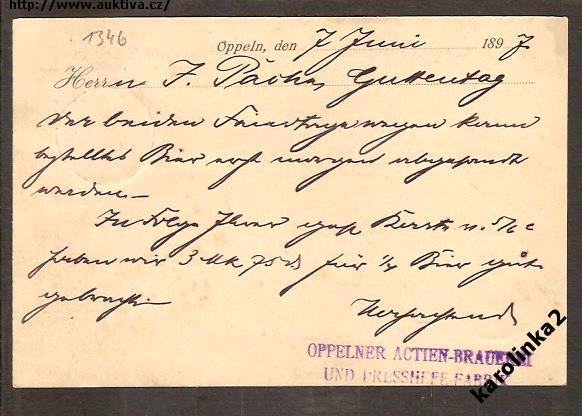 http://www.auktiva.cz/
1346
Oppeln, den 7 Juni 1897
Herrn J. Guttentag
Der beiden Feiertage wegen kann
bestelltes Bier erst morgen abgesandt
werden.
In Folge Ihrer gefl. Karte v. 5/6 c
haben wir 3 Mk 75 für Bier gut
gebracht.
OPPELNER ACTIEN-BRAUEREI
UND PRESSHEFE-FABRIK
karolinka2